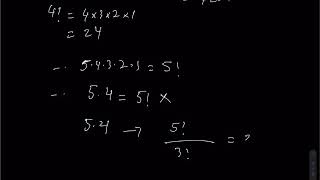 4! = 4×3×2×1
= 24
5.4.3.2.1 = 5!
5.4 = 5! ×
5.4 → 5!/3! = ?